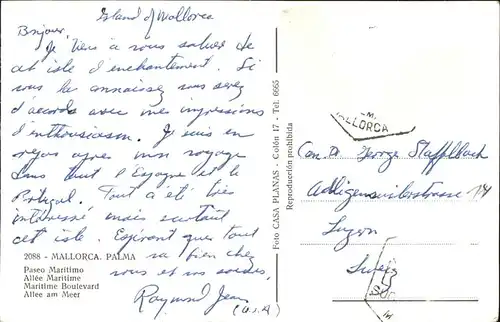 Island of Mallorca
Bonjour,
Je tiens à vous saluer de
cet isle d'enchantement. Si
vous le connaissez vous serez
d'accords avec me impressions
d'enthousiasm. Je suis en
repos apres mon voyage
dans tout l'Espagne et le
Portugal. Tout a été très
intéressé mais surtout
cet isle. Esperant que tout
va bien chez
vous et vos
Raymond Jean
(U.S.A)
2088 - MALLORCA. PALMA
Paseo Marítimo
Allée Maritime
Maritime Boulevard
Allee am Meer
Foto CASA PLANAS - Colón 17 - Tel. 6665
Reproducción prohibida
MALLORCA
George Stafflbach
Adligenswilerstrasse 14
Luzern
Suiza